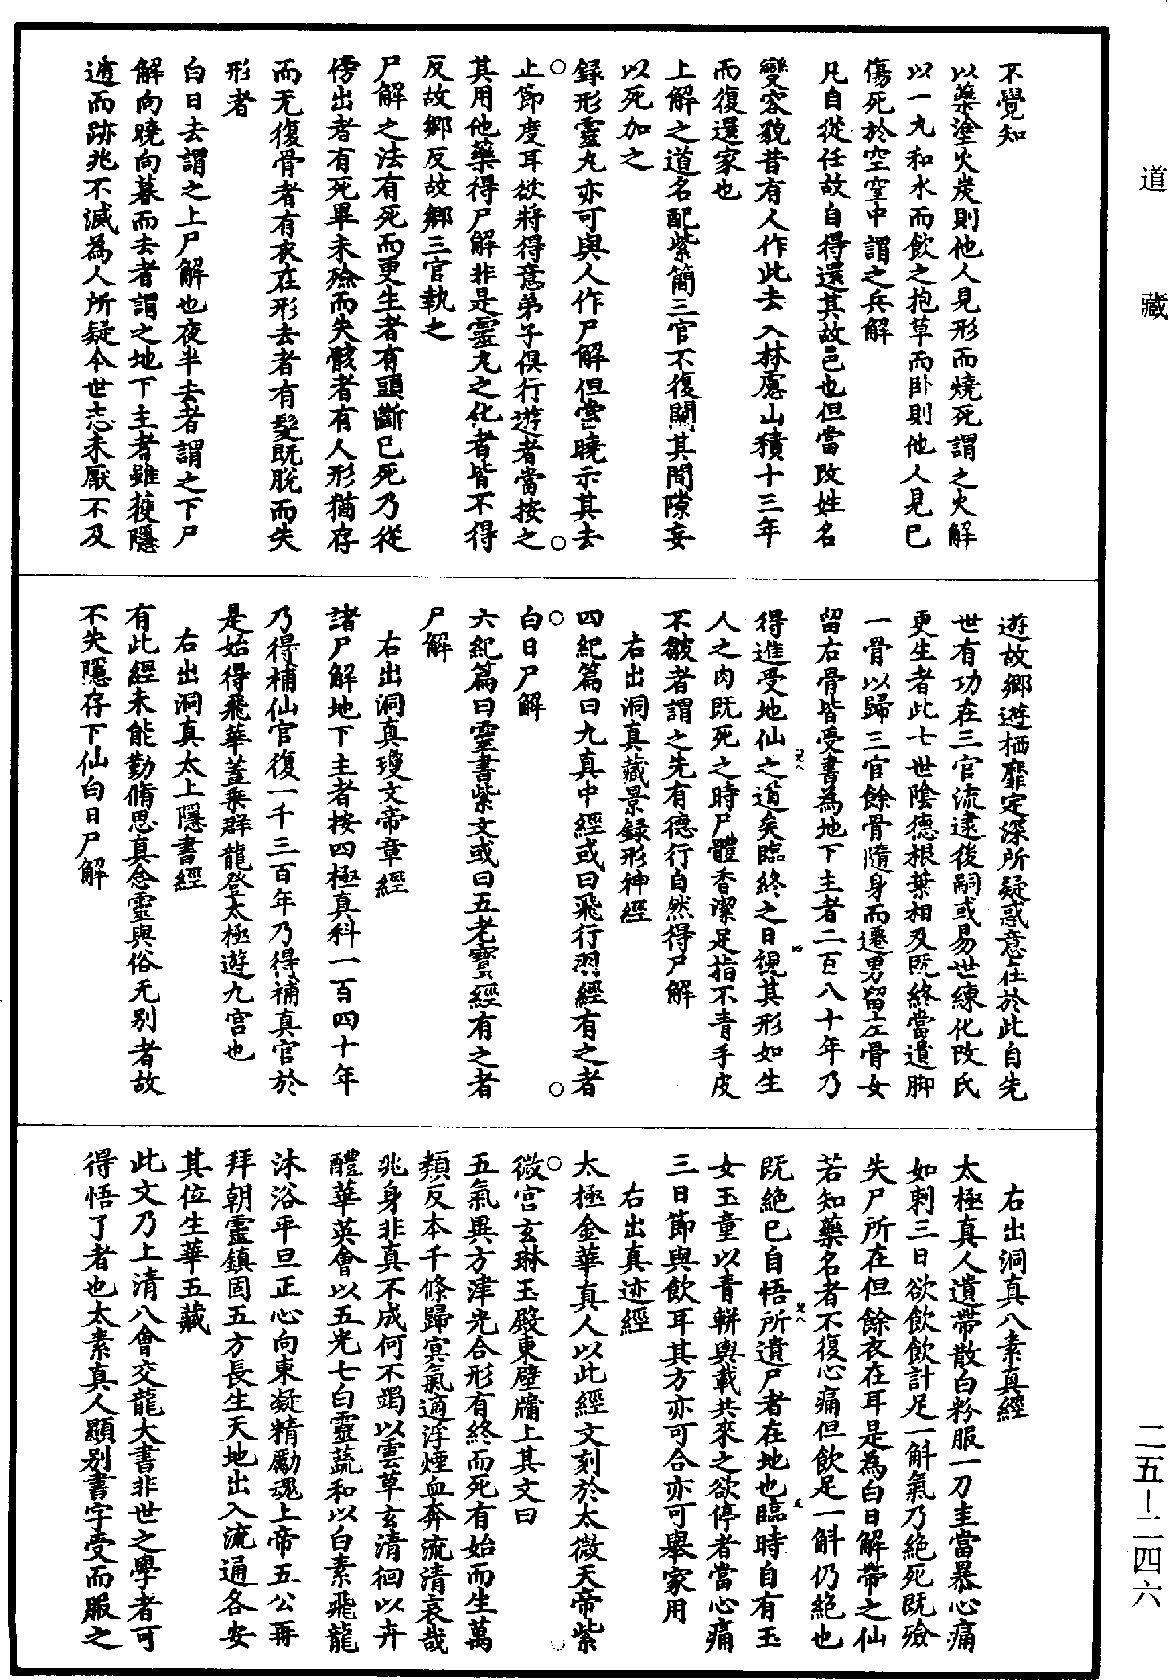 道藏
不覺知
以藥塗火炭則他人見形而燒死謂之火解
以一丸和水而飲之抱草而卧則他人見已
傷死於空室中謂之兵解
凡自從任故自得還其故邑也但當改姓名
變容貌昔有人作此去入林慮山積十三年
而復還家也
上解之道名配紫簡三官不復關其間隙妄
以死加之
錄形靈丸亦可與人作尸解但當曉示其去
止節度耳欲將得意弟子俱行遊者當按之
其用他藥得尸解非是靈丸之化者皆不得
反故鄉反故鄉三官執之
尸解之法有死而更生者有頭斷已死乃從
傍出者有死畢未殮而失骸者有人形猶存
而无復骨者有衣在形去者有髮既脫而失
形者
白日去謂之上尸解也夜半去者謂之下尸
解向曉向暮而去者謂之地下主者雖獲隱
遁而跡兆不滅為人所疑今世志未厭不及
遊故鄉遊栖靡定深所疑惑意在於此自先
世有功在三官流逮後嗣或易世練化改氏
更生者此七世陰德根葉相及既終當遺脚
一骨以歸三官餘骨隨身而遷男留左骨女
留右骨皆受書為地下主者二百八十年乃
得進受地仙之道矣臨終之日視其形如生
人之肉既死之時尸體香潔足指不青手皮
不皺者謂之先有德行自然得尸解
右出洞真藏景錄形神經
四紀篇曰九真中經或曰飛行羽經有之者
白日尸解
六紀篇曰靈書紫文或曰五老寶經有之者
尸解
右出洞真瓊文帝章經
諸尸解地下主者按四極真科一百四十年
乃得補仙官復一千三百年乃得補真官於
是始得飛華蓋乘群龍登太極遊九宮也
右出洞真太上隱書經
有此經未能勤脩思真念靈與俗无別者故
不失隱存下仙白日尸解
右出洞真八素真經
太極真人遺帶散白粉服一刀圭當暴心痛
如刺三日欲飲飲計足一斛氣乃絕死既殮
失尸所在但餘衣在耳是為白日解帶之仙
若知藥名者不復心痛但飲足一斛仍絕也
既絕已自悟所遺尸者在地也臨時自有玉
女玉童以青軿輿載共來之欲停者當心痛
三日節與飲耳其方亦可合亦可舉家用
右出真迹經
太極金華真人以此經文刻於太微天帝紫
微宮玄琳玉殿東壁牖上其文曰
五氣異方津光合形有終而死有始而生萬
類反本千條歸宾氣適浮煙血奔流清哀哉
兆身非真不成何不竭以雲草玄清徊以卉
醴華英會以五光七白靈蔬和以白素飛龍
沐浴平旦正心向東凝精勵魂上帝五公再
拜朝靈鎮固五方長生天地出入流通各安
其位生華五藏
此文乃上清八會交龍大書非世之學者可
得悟了者也太素真人顯別書字受而服之
二五-二四六